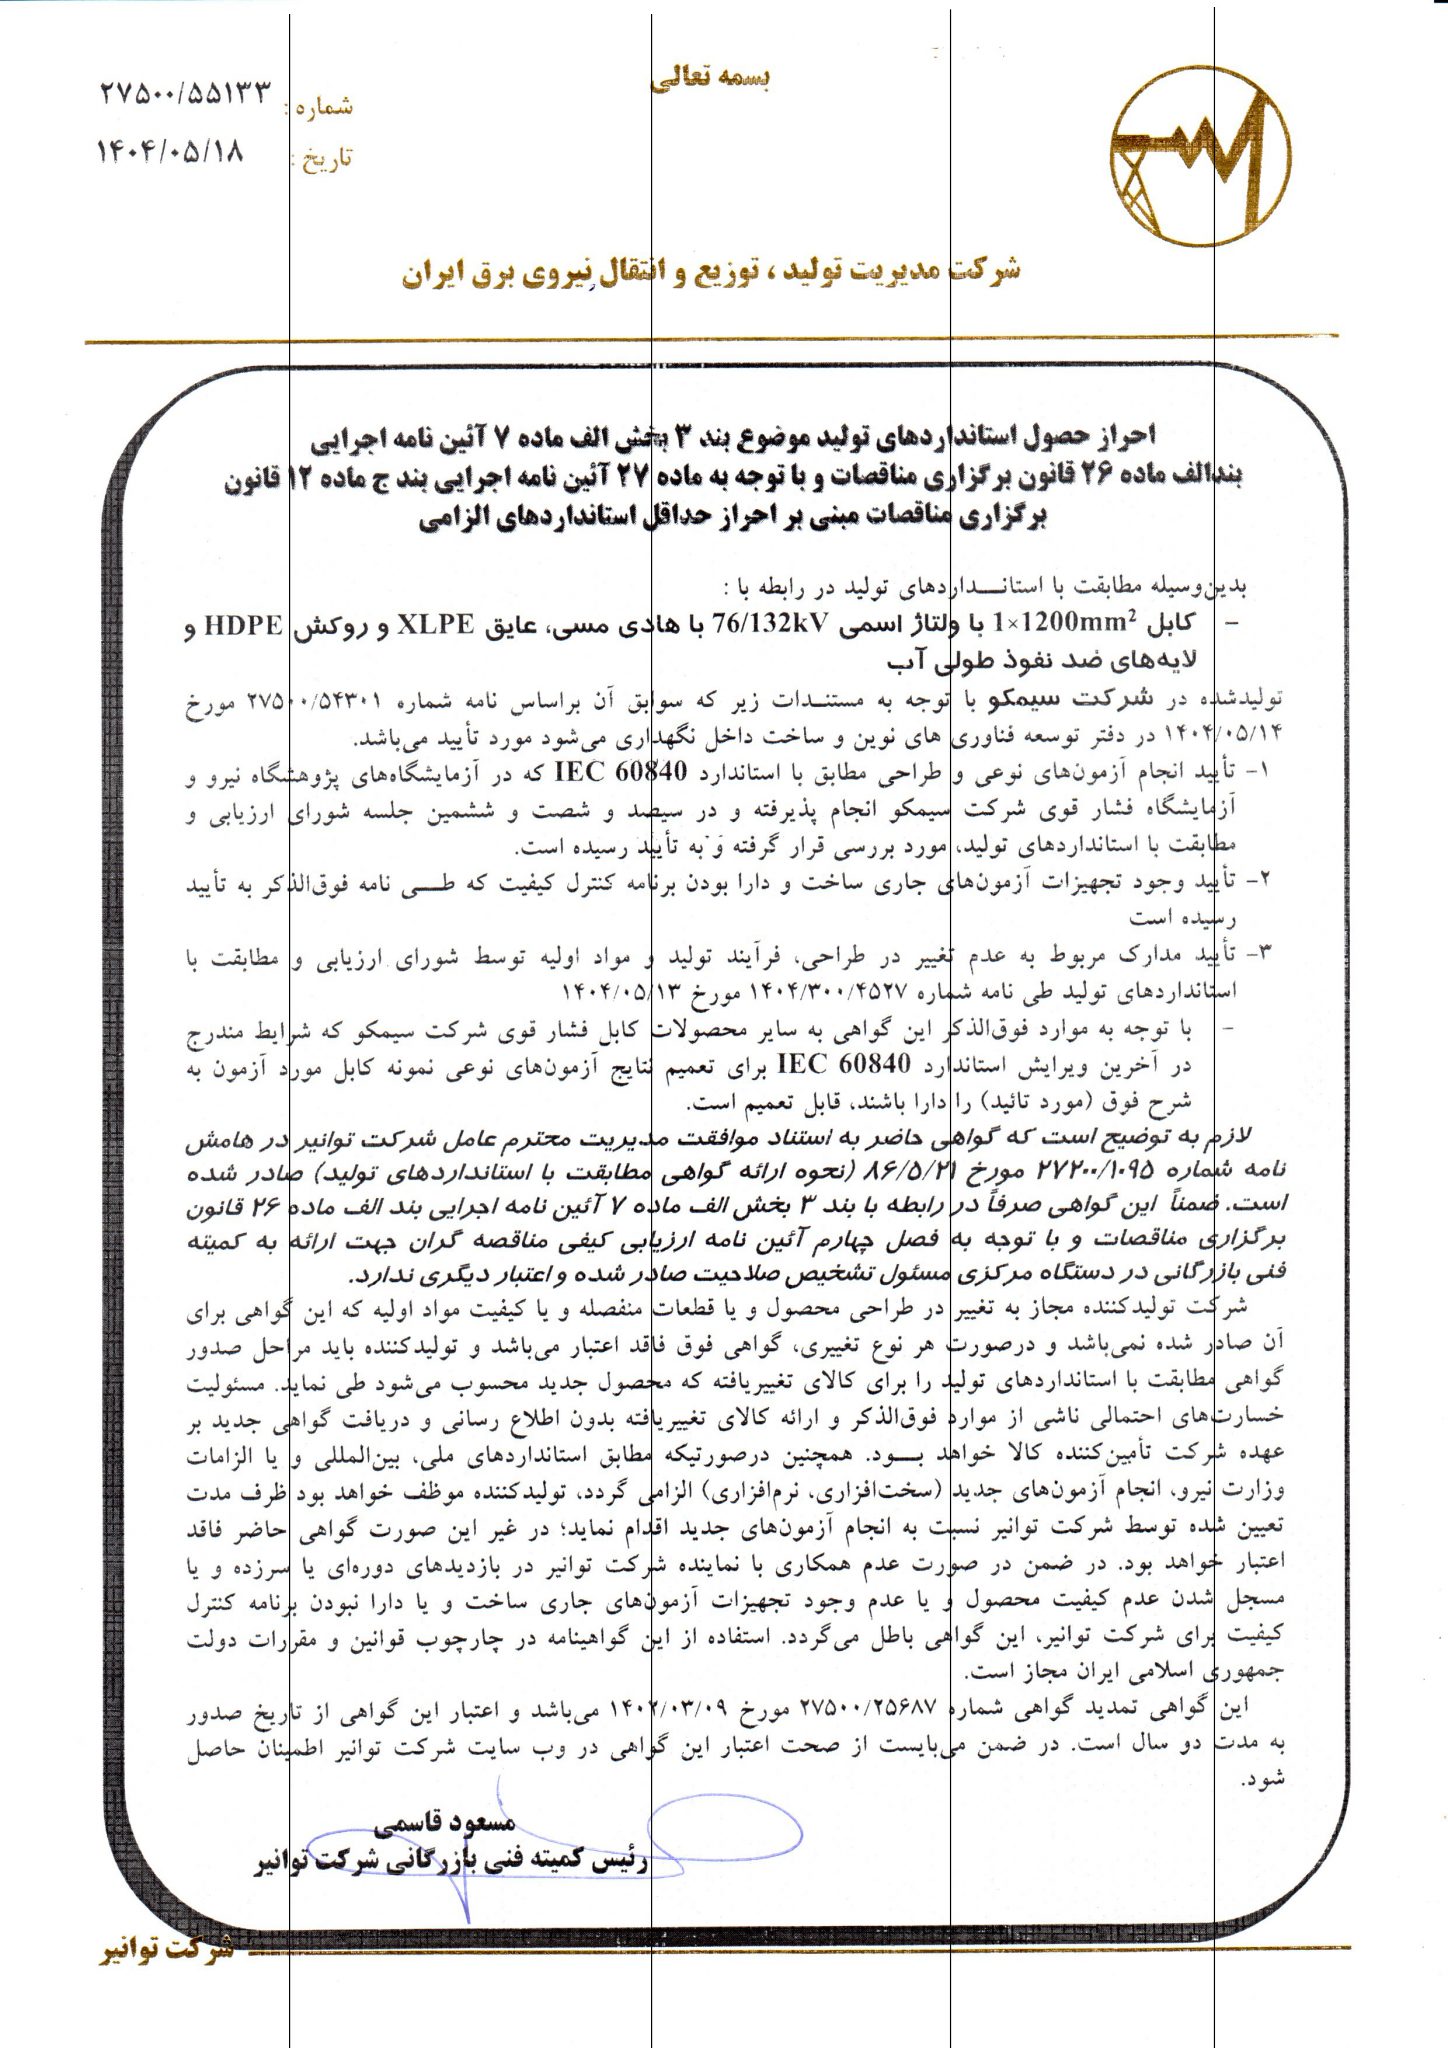 بسمه تعالی
شماره : ۲۷۵۰۰/۵۵۱۳۳
تاریخ : ۱۴۰۴/۰۵/۱۸
شرکت مدیریت تولید ، توزیع و انتقال نیروی برق ایران
احراز حصول استانداردهای تولید موضوع بند ۳ بخش الف ماده ۷ آئین نامه اجرایی
بندالف ماده ۲۶ قانون برگزاری مناقصات و با توجه به ماده ۲۷ آئین نامه اجرایی بند ج ماده ۱۲ قانون
برگزاری مناقصات مبنی بر احراز حداقل استانداردهای الزامی
بدین‌وسیله مطابقت با استانــداردهای تولید در رابطه با :
- کابل 1×1200mm² با ولتاژ اسمی 76/132kV با هادی مسی، عایق XLPE و روکش HDPE و
لایه‌های ضد نفوذ طولی آب
تولیدشده در شرکت سیمکو با توجه به مستندات زیر که سوابق آن براساس نامه شماره ۲۷۵۰۰/۵۴۳۰۱ مورخ
۱۴۰۴/۰۵/۱۴ در دفتر توسعه فناوری های نوین و ساخت داخل نگهداری می‌شود مورد تأیید می‌باشد.
۱- تأیید انجام آزمون‌های نوعی و طراحی مطابق با استاندارد IEC 60840 که در آزمایشگاه‌های پژوهشگاه نیرو و
آزمایشگاه فشار قوی شرکت سیمکو انجام پذیرفته و در سیصد و شصت و ششمین جلسه شورای ارزیابی و
مطابقت با استانداردهای تولید، مورد بررسی قرار گرفته و به تأیید رسیده است.
۲- تأیید وجود تجهیزات آزمون‌های جاری ساخت و دارا بودن برنامه کنترل کیفیت که طــی نامه فوق‌الذکر به تأیید
رسیده است
۳- تأیید مدارک مربوط به عدم تغییر در طراحی، فرآیند تولید و مواد اولیه توسط شورای ارزیابی و مطابقت با
استانداردهای تولید طی نامه شماره ۱۴۰۴/۳۰۰/۴۵۲۷ مورخ ۱۴۰۴/۰۵/۱۳
- با توجه به موارد فوق‌الذکر این گواهی به سایر محصولات کابل فشار قوی شرکت سیمکو که شرایط مندرج
در آخرین ویرایش استاندارد IEC 60840 برای تعمیم نتایج آزمون‌های نوعی نمونه کابل مورد آزمون به
شرح فوق (مورد تائید) را دارا باشند، قابل تعمیم است.
لازم به توضیح است که گواهی حاضر به استناد موافقت مدیریت محترم عامل شرکت توانیر در هامش
نامه شماره ۲۷۲۰۰/۱۰۹۵ مورخ ۸۶/۵/۲۱ (نحوه ارائه گواهی مطابقت با استانداردهای تولید) صادر شده
است. ضمناً این گواهی صرفاً در رابطه با بند ۳ بخش الف ماده ۷ آئین نامه اجرایی بند الف ماده ۲۶ قانون
برگزاری مناقصات و با توجه به فصل چهارم آئین نامه ارزیابی کیفی مناقصه گران جهت ارائه به کمیته
فنی بازرگانی در دستگاه مرکزی مسئول تشخیص صلاحیت صادر شده و اعتبار دیگری ندارد.
شرکت تولیدکننده مجاز به تغییر در طراحی محصول و یا قطعات منفصله و یا کیفیت مواد اولیه که این گواهی برای
آن صادر شده نمی‌باشد و درصورت هر نوع تغییری، گواهی فوق فاقد اعتبار می‌باشد و تولیدکننده باید مراحل صدور
گواهی مطابقت با استانداردهای تولید را برای کالای تغییریافته که محصول جدید محسوب می‌شود طی نماید. مسئولیت
خسارت‌های احتمالی ناشی از موارد فوق‌الذکر و ارائه کالای تغییریافته بدون اطلاع رسانی و دریافت گواهی جدید بر
عهده شرکت تأمین‌کننده کالا خواهد بــود. همچنین درصورتیکه مطابق استانداردهای ملی، بین‌المللی و یا الزامات
وزارت نیرو، انجام آزمون‌های جدید (سخت‌افزاری، نرم‌افزاری) الزامی گردد، تولیدکننده موظف خواهد بود ظرف مدت
تعیین شده توسط شرکت توانیر نسبت به انجام آزمون‌های جدید اقدام نماید؛ در غیر این صورت گواهی حاضر فاقد
اعتبار خواهد بود. در ضمن در صورت عدم همکاری با نماینده شرکت توانیر در بازدیدهای دوره‌ای یا سرزده و یا
مسجل شدن عدم کیفیت محصول و یا عدم وجود تجهیزات آزمون‌های جاری ساخت و یا دارا نبودن برنامه کنترل
کیفیت برای شرکت توانیر، این گواهی باطل می‌گردد. استفاده از این گواهینامه در چارچوب قوانین و مقررات دولت
جمهوری اسلامی ایران مجاز است.
این گواهی تمدید گواهی شماره ۲۷۵۰۰/۲۵۶۸۷ مورخ ۱۴۰۲/۰۳/۰۹ می‌باشد و اعتبار این گواهی از تاریخ صدور
به مدت دو سال است. در ضمن می‌بایست از صحت اعتبار این گواهی در وب سایت شرکت توانیر اطمینان حاصل
شود.
مسعود قاسمی
رئیس کمیته فنی بازرگانی شرکت توانیر
شرکت توانیر